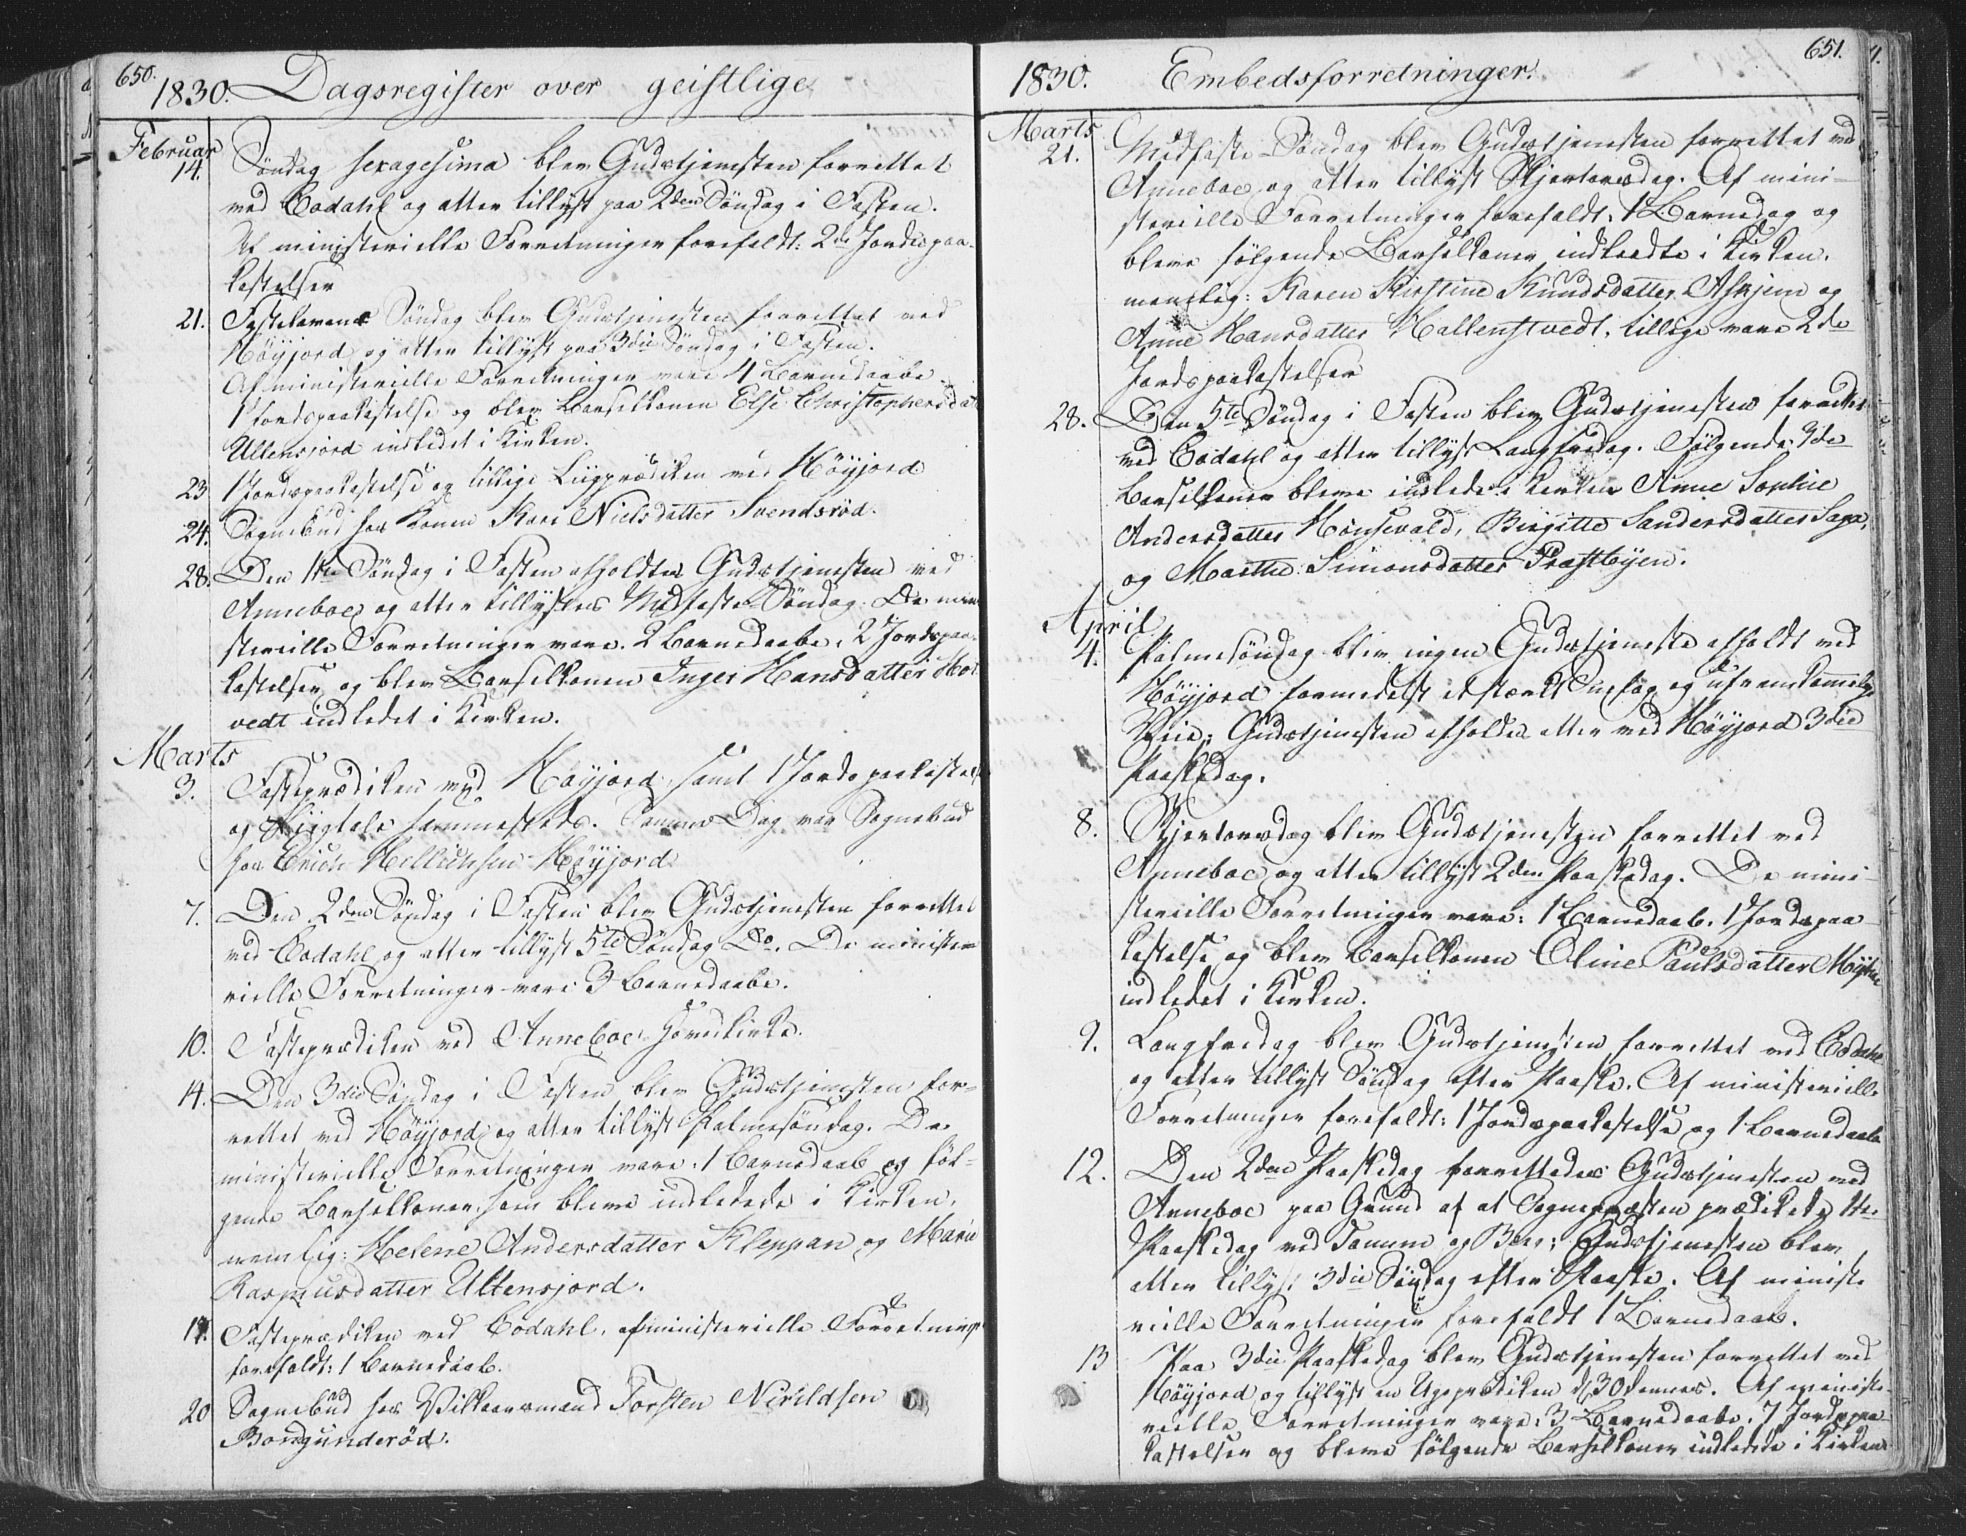 650.
1830. Dagsregister over geistlige
Februar
14. Søndag sexagesima blev Gudstjenesten forrettet
ved Codahl og atter tillyst paa 2den Søndag i Fasten.
Af ministerielle Forretninger forefaldt: 2de Jordspaa-
kastelser
21. Fastelavens Søndag blev Gudstjenesten forrettet ved
Höyjord og atter tillyst paa 3die Søndag i Fasten.
Af ministerielle Forretninger vare 4 Barnedaabe
1 Jordspaakastelse og blev Barselkonen Else Christophersdat
Ultensjord indledet i Kirken.
23 1 Jordspaakastelse og tillige Liigprædiken ved Höyjord
24. Sognebud hos Konen Kari Nielsdatter Svendsröd.
28. Den 1ste Søndag i Fasten afholdtes Gudstjenesten ved
Anneboe og atter tillystes Midfaste Søndag. De mini
sterielle Forretninger vare. 2 Barnedaabe, 2 Jordspaa-
kastelser og blev Barselkonen Inger Hansdatter Hot
vedt indledet i Kirken.
Marts
3. Fasteprædiken ved Höyjord, samt 1 Jordspaakastelse
og Liigtale sammesteds. Samme Dag var Sognebud
hos Erich Höyjord
7. Den 2den Søndag i Fasten blev Gudstjenesten forrettet
ved Codahl og atter tillyst 5te Søndag Do. De ministe
rielle Forretninger vare 3 Barnedaabe.
10. Fasteprædiken ved Anneboe Hovedkirke.
14. Den 3die Søndag i Fasten blev Gudstjenesten for-
rettet ved Höyjord og atter tillyst Palmesöndag. De
ministerielle Forretninger vare. 1 Barnedaab og föl-
gende Barselkoner som bleve indledede i Kirken,
nemlig: Helene Andersdatter Kleppan og Marie
Rasmusdatter Ultensjord.
17. Fasteprædiken ved Codahl, af ministerielle Forretninger
forefaldt: 1 Barnedaab.
20 Sognebud hos Vilkaarsmand Torsten Nirildsen
Bongunderöd.
651.
1830. Embedsforretninger.
Marts
21. Midfaste-Søndag blev Gudstjenesten forrettet ved
Anneboe og atter tillyst Skjertorsdag. Af mini-
sterielle Forretninger forefaldt, 1 Barnedaab og
bleve følgende Barselkoner indledte i Kirken,
nemlig: Karen Kirstine Knudsdatter Askjem og
Anne Hansdatter Hallenstvedt, tillige vare 2de
Jordspaakastelser
28. Den 5te Søndag i Fasten blev Gudstjenesten forrettet
ved Codahl og atter tillyst Langfredag. Følgende 3de
Barselkoner bleve indlede i Kirken Anne Sophie
Andersdatter Hönsevald, Birgitte Sandersdatter Saga,
og Marthe Simonsdatter Præstbyen.
April
4. Palmesöndag blev ingen Gudstjeneste afholdt ved
Höyjord formedelst et stærkt Sneefog og ufremkommelige
Veie; Gudstjenesten afholdes atter ved Höyjord 3die
Paaskedag.
8. Skjertorsdag blev Gudstjenesten forrettet ved
Anneboe og atter tillyst 2den Paaskedag. De mini-
sterielle Forretninger vare: 1 Barnedaab, 1 Jordspaa
kastelse og blev Barselkonen Oline Paulsdatter
indledet i Kirken.
9. Langfredag blev Gudstjenesten forrettet ved Codahl
og atter tillyst Søndag efter Paaske. Af ministerielle
Forretninger forefaldt: 1 Jordspaakastelse og 1 Barnedaab
12. Den 2den Paaskedag forrettedes Gudstjenesten ved
Anneboe paa Grund af at Sognepræsten prædikede 1ste
Paaskedag ved Fammm og Berg; Gudstjenesten blev
atter tillyst 3die Søndag efter Paaske. Af ministe
rielle Forretninger forefaldt 1 Barnedaab.
13 Paa 3die Paaskedag blev Gudstjenesten forrettet ved
Höyjord og tillyst en Ugeprædiken d: 30 dennes. Af ministe-
rielle Forretninger vare: 3 Barnedaabe, 7 Jordspaa
kastelser og bleve følgende Barselkoner indledede i Kirken